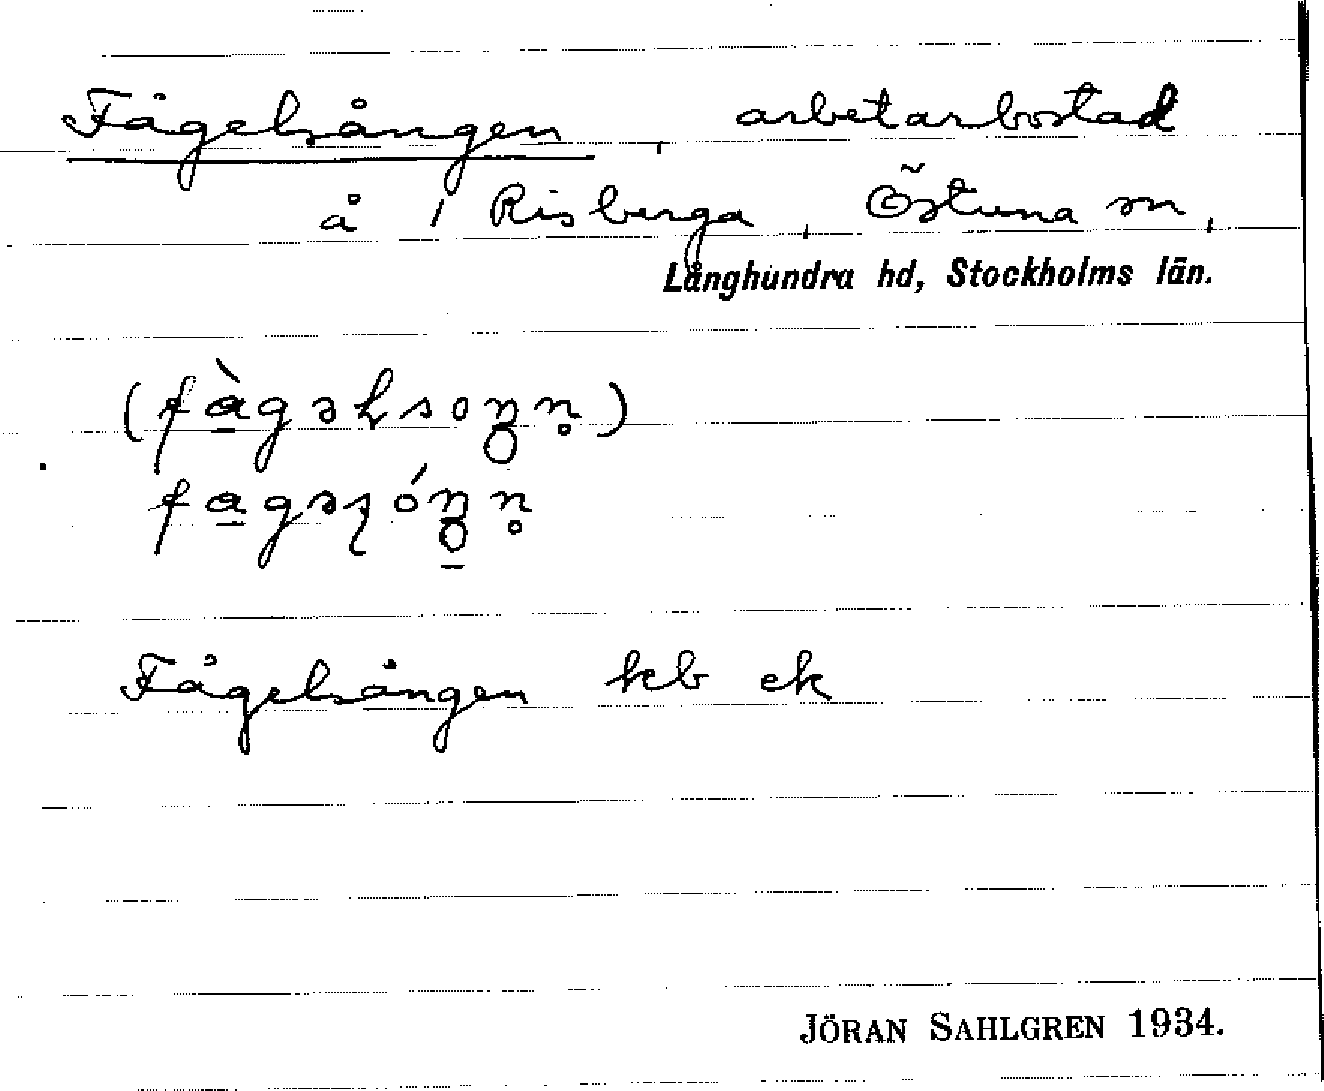 Fågelsången, arbetarbostad
å 1 Risberga, Östuna sn,
Långhundra hd, Stockholms län.
Fågelsången kb ek
JÖRAN SAHLGREN 1934.